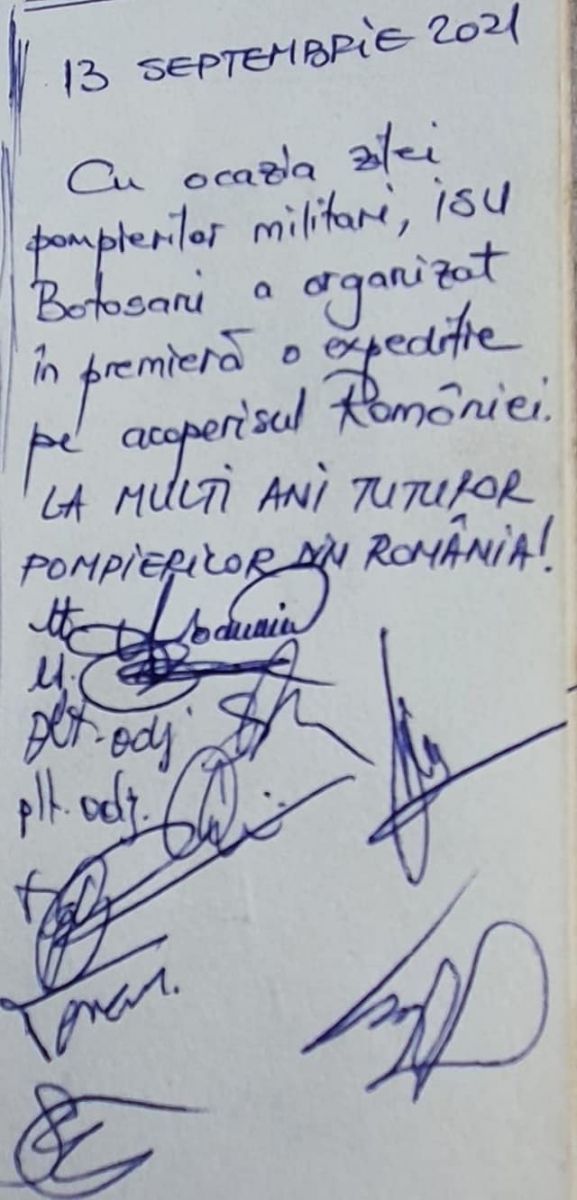 13 SEPTEMBRIE 2021
Cu ocazia zilei
pompierilor militari, ISU
Botosani a organizat
în premieră o expediție
pe acoperisul României.
LA MULTI ANI TUTUROR
POMPIERILOR DIN ROMÂNIA!
Plt. adj.
plt. adj.